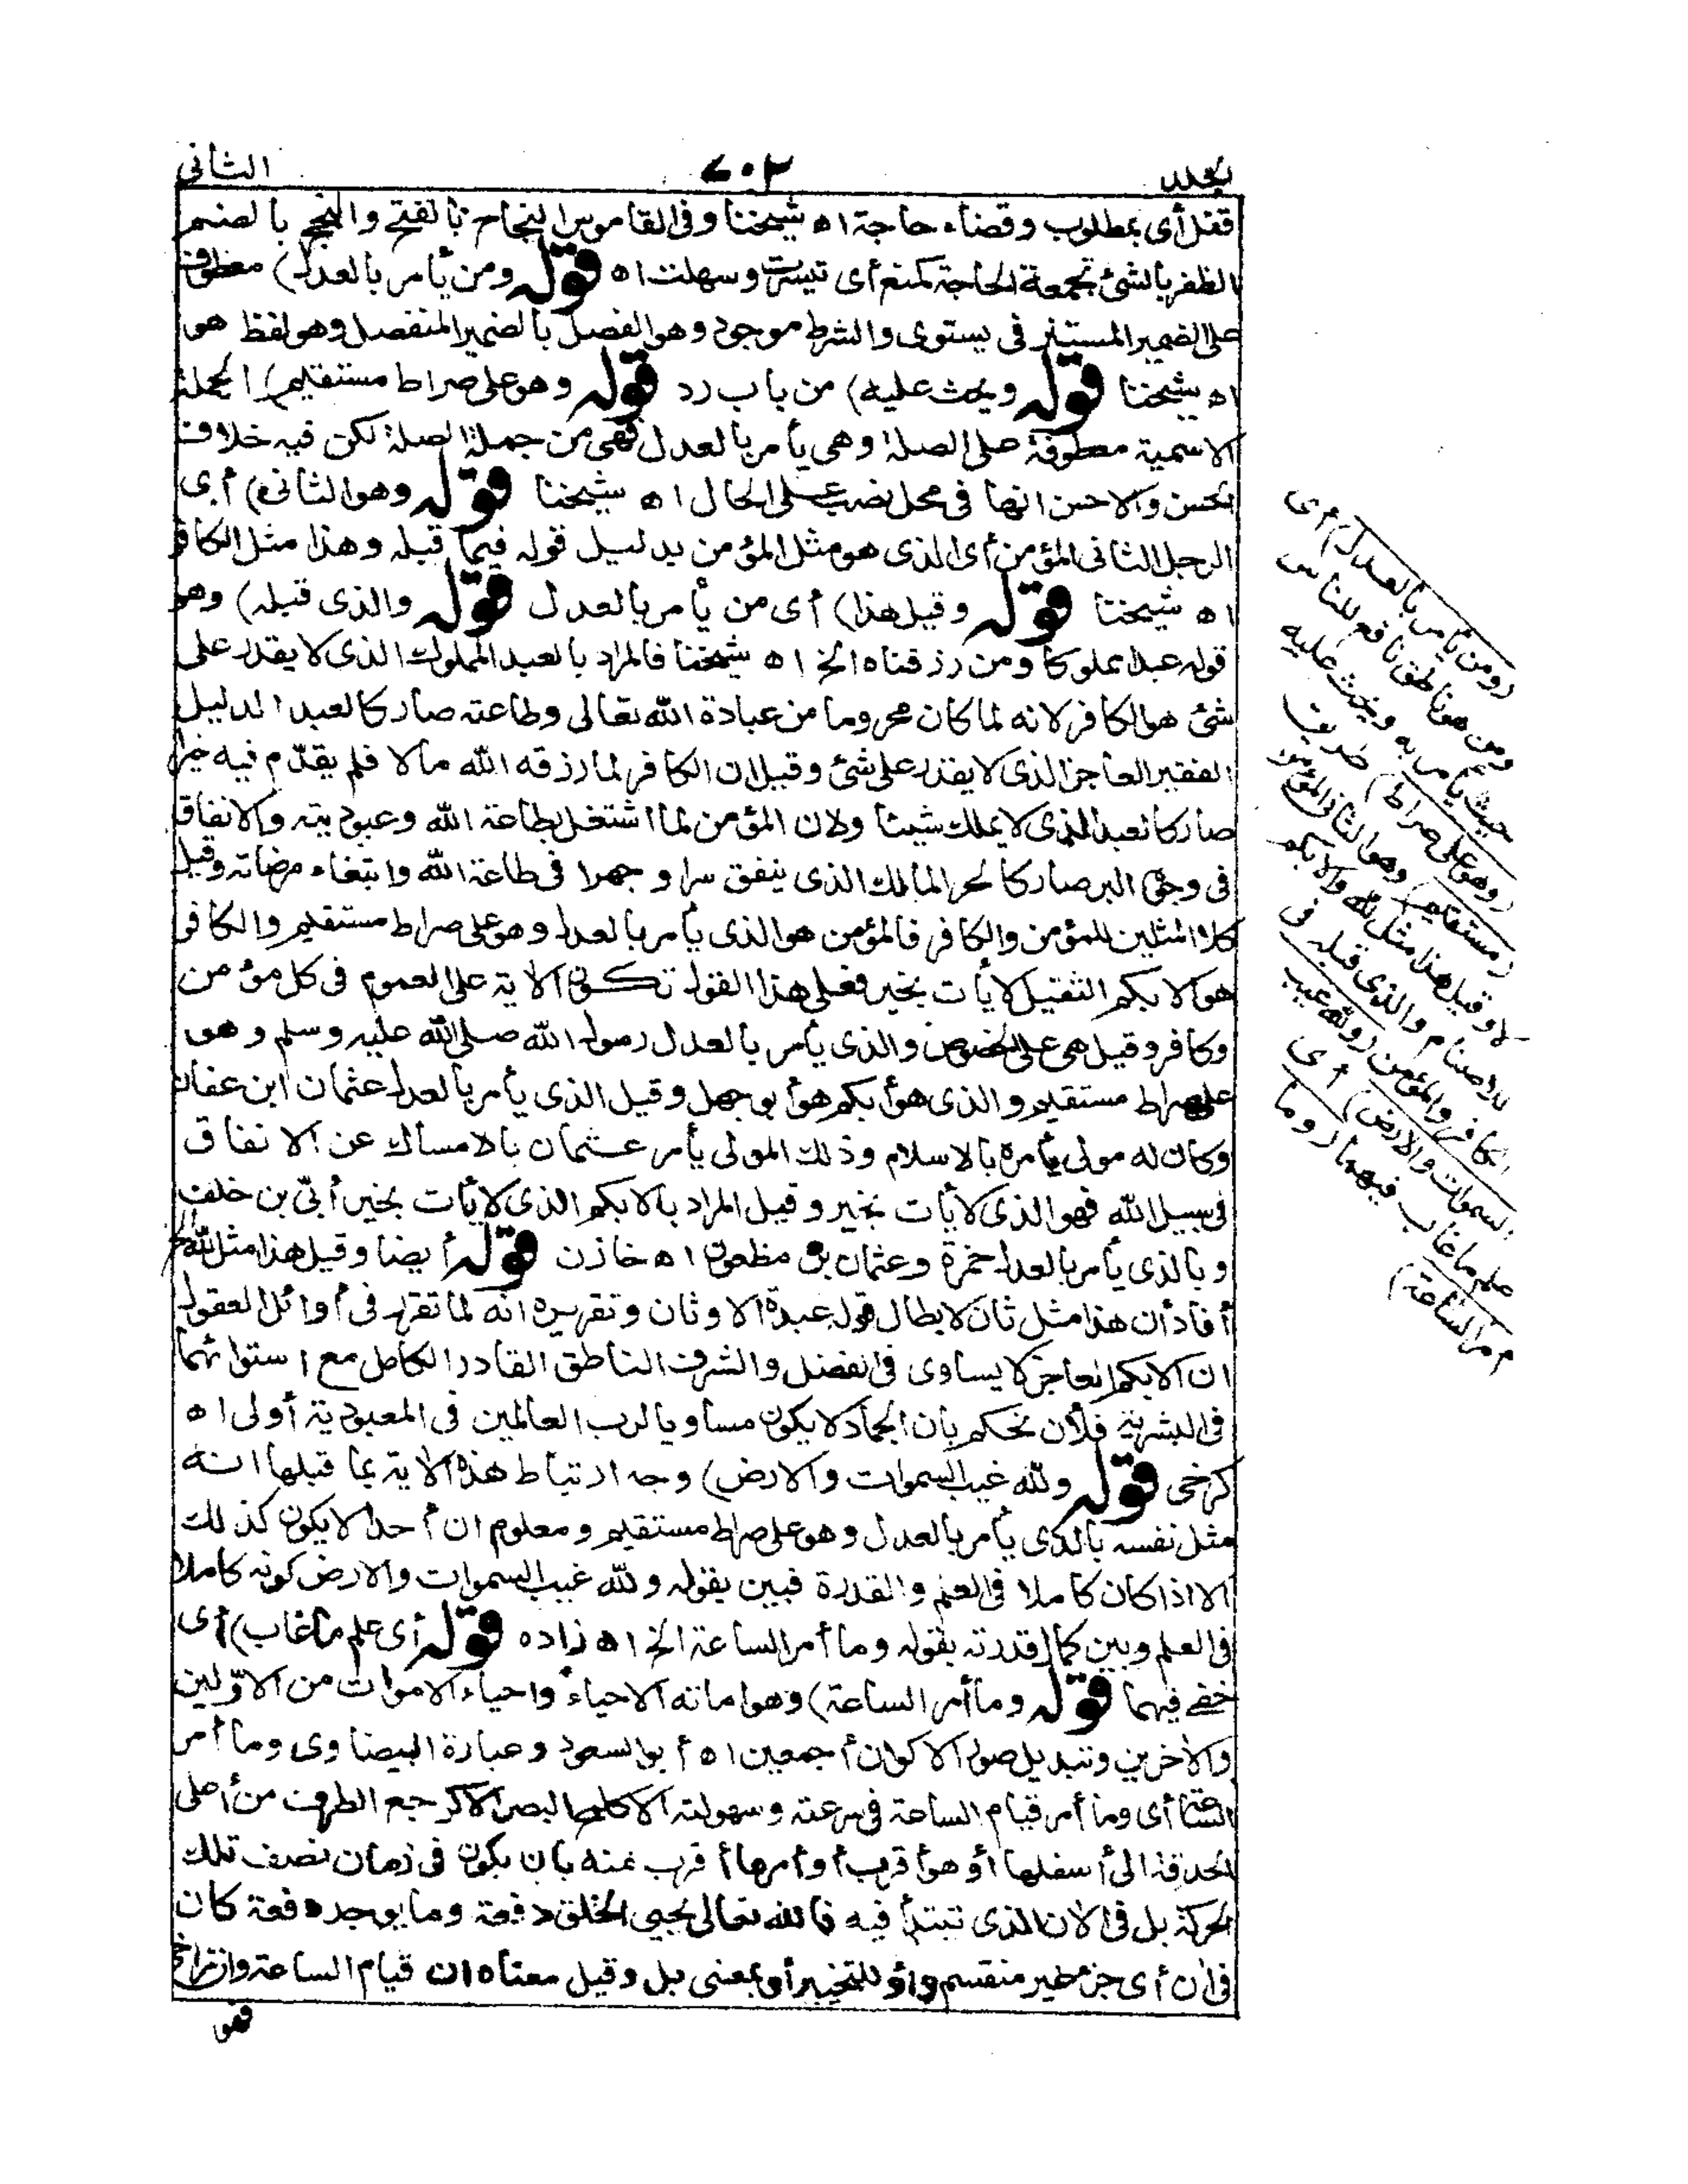 المجلد ٦٠٢ الثانى
قفل أى بمطلوب وقضاء حاجة اه شيخنا وفى القاموس النجاح بالفتح والنجح بالضم
الظفر بالشئ نجحت الحاجة كمنع أى تيسرت وسهلت اه قوله ومن يأمر بالعدل) معطوف
على الضمير المستتر فى يستوى والشرط موجود وهو الفصل بالضمير المنفصل وهو لفظ هو
اه شيخنا قوله ويحث عليه) من باب رد قوله وهو على صراط مستقيم) الجملة
الاسمية معطوفة على الصلة وهى يأمر بالعدل فهى من جملة الصلة لكن فيه خلاف
الحسن والاحسن انها فى محل نصب على الحال اه شيخنا قوله وهو الثانى) أى
الرجل الثانى المؤمن أى الذى هو مثل المؤمن بدليل قوله فيما قبله وهذا مثل الكافر
اه شيخنا قوله وقيل هذا) أى من يأمر بالعدل قوله والذى قبله) وهو
قوله عبدا مملوكا ومن رزقناه الخ اه شيخنا فالمراد بالعبد المملوك الذى لا يقدر على
شئ هو الكافر لانه لما كان محروما من عبادة الله تعالى وطاعته صار كالعبد الدليل
الفقير العاجز الذى لا يقدر على شئ وقيل ان الكافر لما رزقه الله مالا فلم يقدّم فيه خيرا
صار كالعبد الذى لا يملك شيئا ولان المؤمن لما اشتغل بطاعة الله وعبوديته والانفاق
فى وجوه البر صار كالحر المالك الذى ينفق سرا وجهرا فى طاعة الله وابتغاء مرضاته وقيل
كلا المثلين للمؤمن والكافر فالمؤمن هو الذى يأمر بالعدل وهو على صراط مستقيم والكافر
هو الابكم الثقيل لا يأت بخير فعلى هذا القول تكون الاية على العموم فى كل مؤمن
وكافر وقيل هى على الخصوص والذى يأمر بالعدل رسول الله صلى الله عليه وسلم وهو
على صراط مستقيم والذى هو أبكم هو أبو جهل وقيل الذى يأمر بالعدل عثمان ابن عفان
وكان له مولى يأمره بالاسلام وذلك المولى يأمر عثمان بالامساك عن الانفاق
فى سبيل الله فهو الذى لا يأت بخير وقيل المراد بالابكم الذى لا يأت بخير أبىّ بن خلف
وبالذى يأمر بالعدل حمزة وعثمان بن مظعون اه خازن قوله أيضا وقيل هذا مثل لله الخ
أفاد أن هذا مثل ثان لابطال قول عبدة الاوثان وتقريره انه لما تقرر فى أوائل العقول
ان الابكم العاجز لا يساوى فى الفضل والشرف الناطق القادر الكامل مع استوائهما
فى البشرية فلأن نحكم بان الجماد لا يكون مساويا لرب العالمين فى المعبودية أولى اه
كرخى قوله ولله غيب السموات والارض) وجه ارتباط هذه الاية بما قبلها انه
مثل نفسه بالذى يأمر بالعدل وهو على صراط مستقيم ومعلوم ان أحدا لا يكون كذلك
الا اذا كان كاملا فى العلم والقدرة فبين بقوله ولله غيب السموات والارض كونه كاملا
فى العلم وبين كمال قدرته بقوله وما أمر الساعة الخ اه زاده قوله أى علم ما غاب) أى
خفى فيهما قوله وما أمر الساعة) وهو اماتة الاحياء واحياء الاموات من الاوّلين
والأخرين وتبديل صور الاكوان أجمعين اه أبو السعود وعبارة البيضاوى وما أمر
الساعة أى وما أمر قيام الساعة فى سرعته وسهولته الا كلمح البصر الا كرجع الطرف من أعلى
الحدقة الى أسفلها أو هو أقرب أو أمرها أقرب منه بان يكون فى زمان نصف تلك
الحركة بل فى الان الذى تبتدأ فيه فالله تعالى يحيى الخلق دفعة وما يوجد دفعة كان
فى ان أى جزء غير منقسم وأو للتخيير أو بمعنى بل وقيل معناه ان قيام الساعة وان تراخى
فهو
(ومن يأمر بالعدل) أى
ومن هو ناطق نافع للناس
حيث يأمر به ويحث عليه
(وهو على صراط) طريق
(مستقيم) وهو الثانى المؤمن
لا وقيل هذا مثل لله والابكم
للاصنام والذى قبله فى
الكافر والمؤمن (ولله غيب
السموات والارض) أى
علم ما غاب فيهما (وما
أمر الساعة)